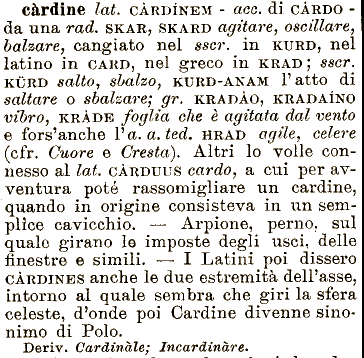 càrdine lat. CÀRDÍNEM - acc. di CÀRDO -
da una rad. SKAR, SKARD agitare, oscillare,
balzare, cangiato nel sscr. in KURD, nel
latino in CARD, nel greco in KRAD; sscr.
KÜRD salto, sbalzo, KURD-ANAM l'atto di
saltare o sbalzare; gr. KRADÀO, KRADAÍNO
vibro, KRÀDE foglia che è agitata dal vento
e fors'anche l'a. a. ted. HRAD agile, celere
(cfr. Cuore e Cresta). Altri lo volle con-
nesso al lat. CÀRDUUS cardo, a cui per av-
ventura poté rassomigliare un cardine,
quando in origine consisteva in un sem-
plice cavicchio. — Arpione, perno, sul
quale girano le imposte degli usci, delle
finestre e simili. — I Latini poi dissero
CÀRDINES anche le due estremità dell'asse,
intorno al quale sembra che giri la sfera
celeste, d'onde poi Cardine divenne sino-
nimo di Polo.
Deriv. Cardinàle; Incardinàre.